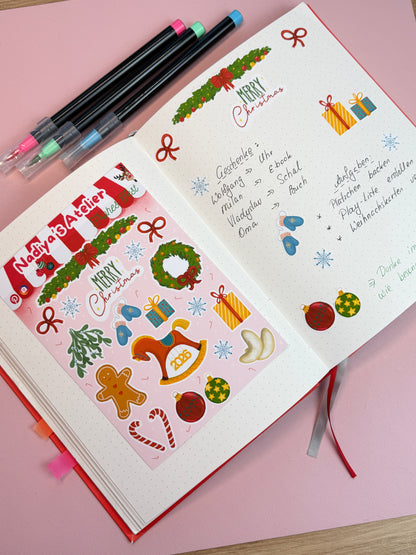 Nadiya's Atelier
MERRY
Christmas
2026
MERRY
Christmas
Geschenke:
Wolfgang => Uhr
Milan => Ebook
Vladyslav => Schal
Oma => Buch
Aufgaben:
* Plätzchen backen
* Play-Liste erstellen
* Weihnachtskarten
=> Danke
wie